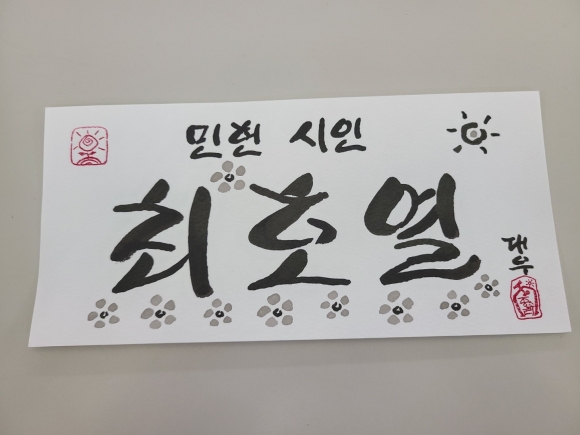 민현 시인
최호열
대우